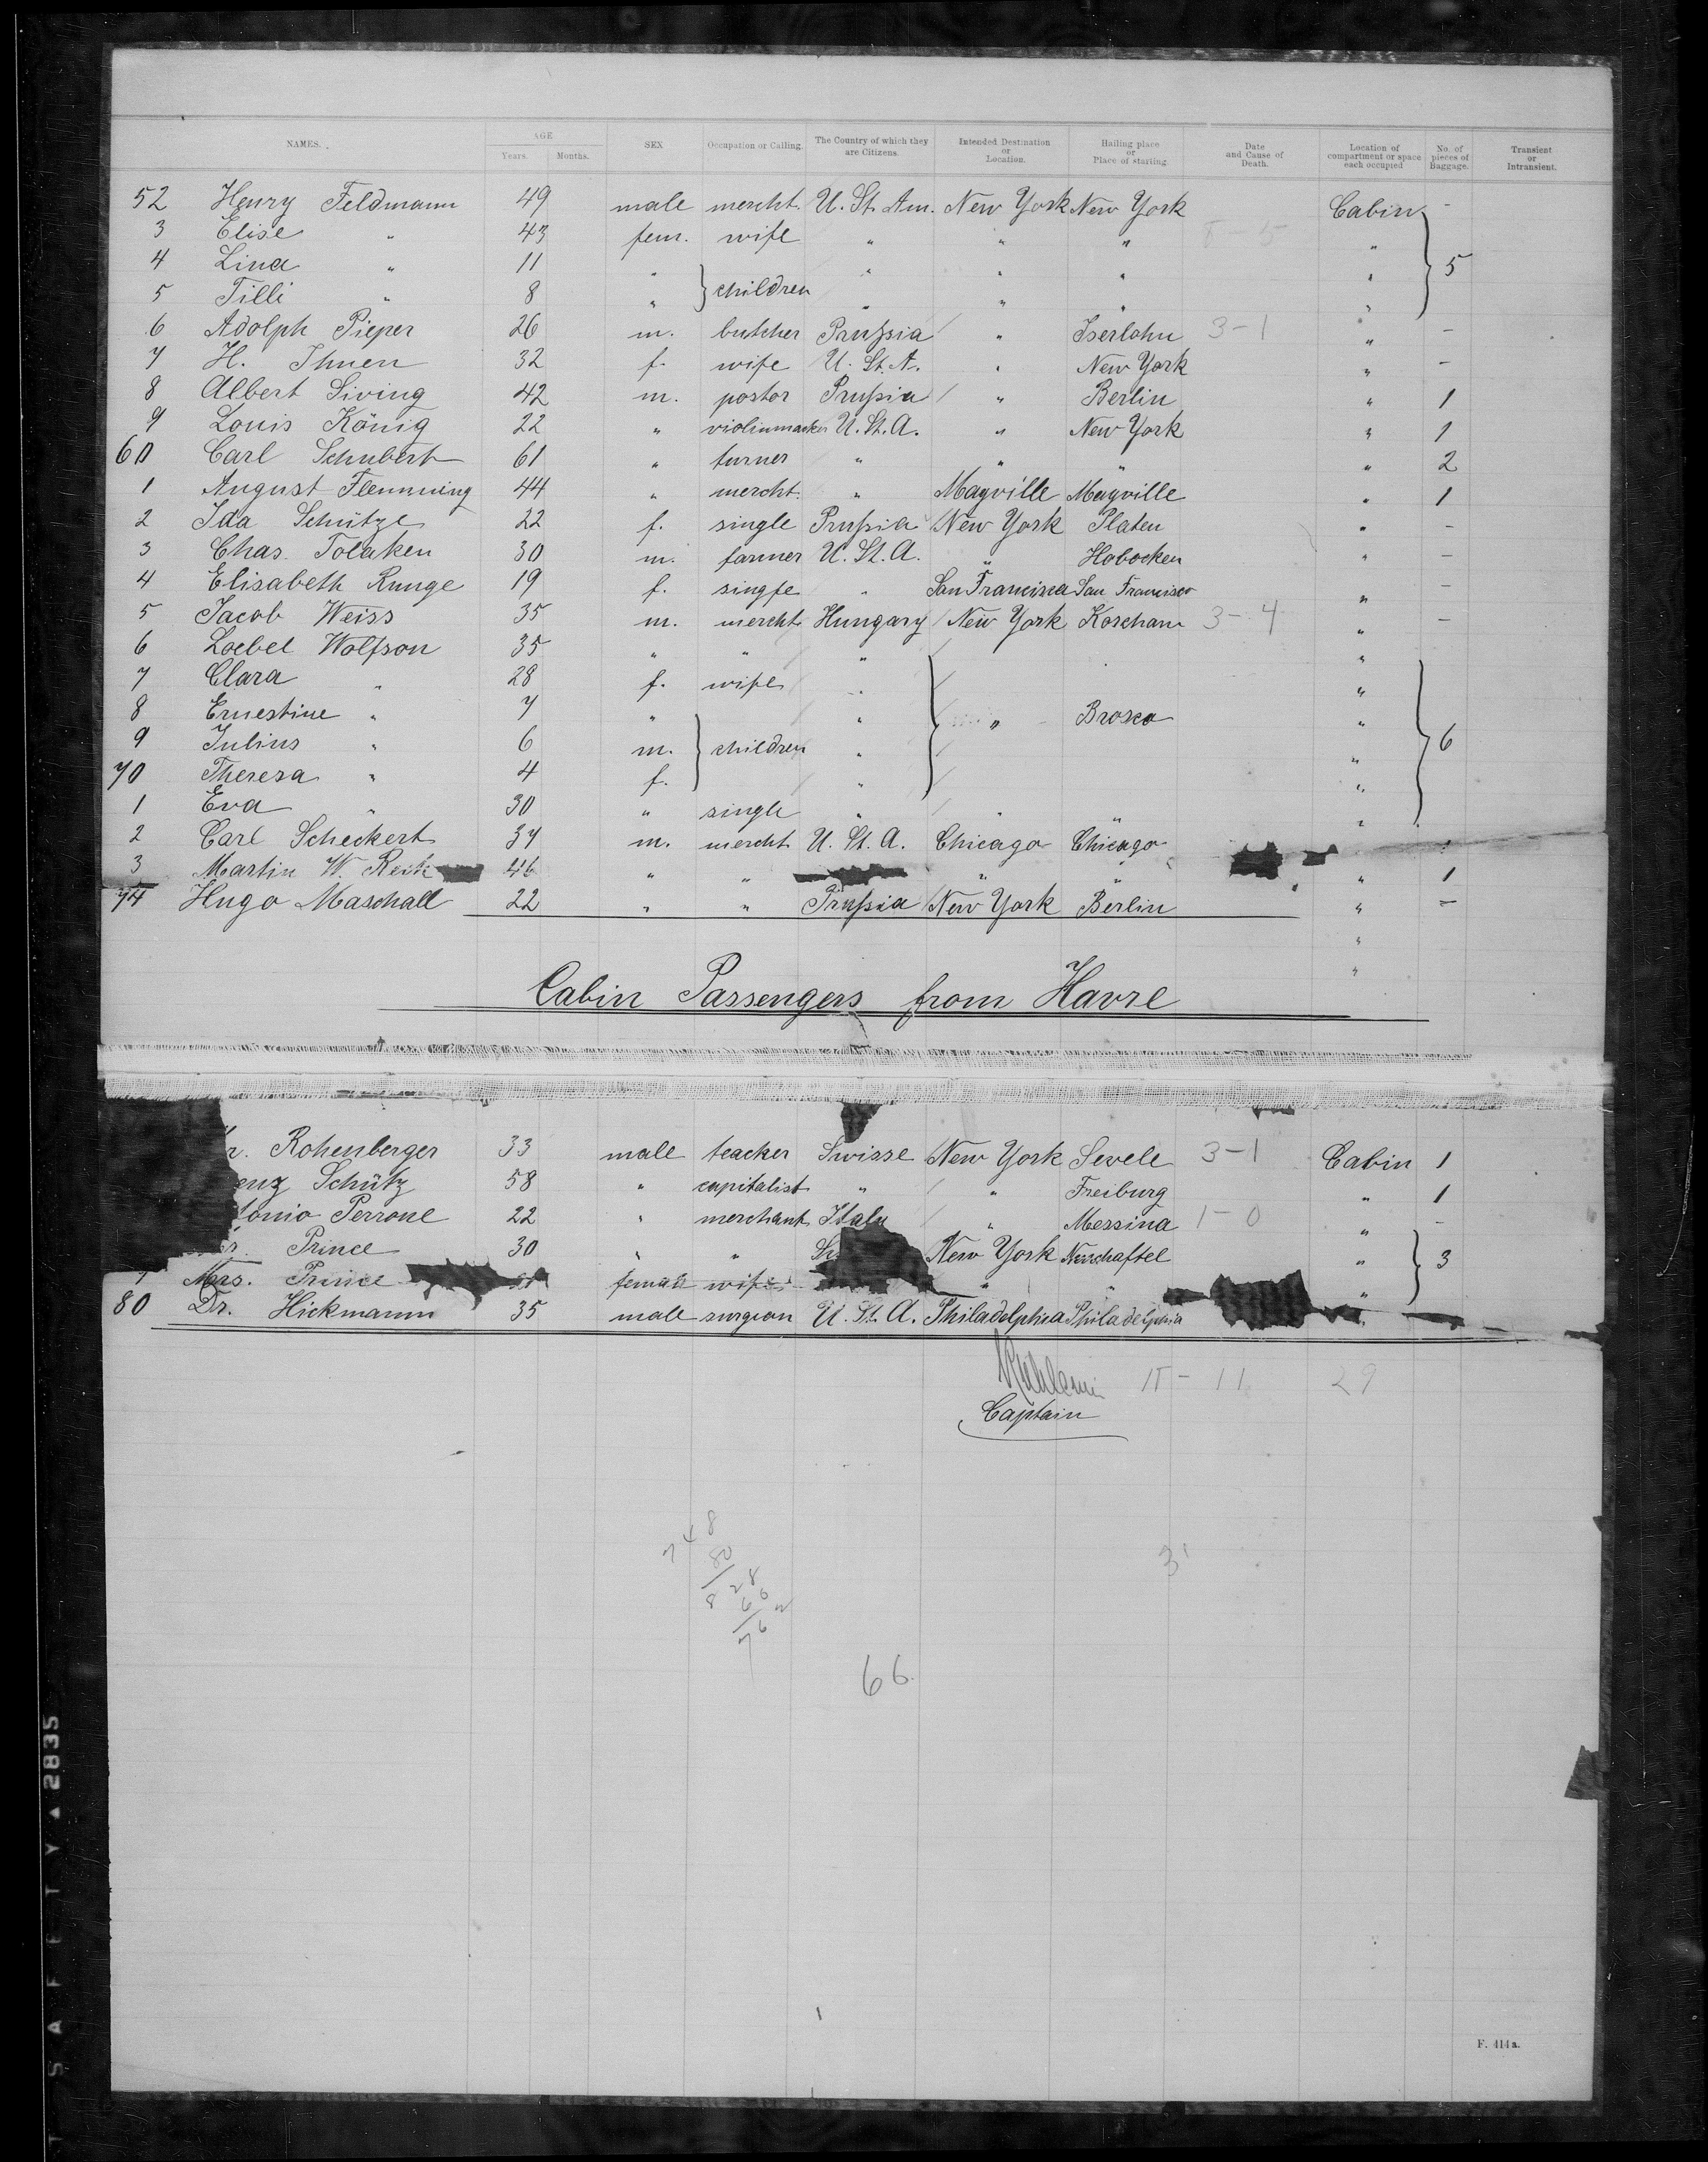 NAMES. AGE SEX Occupation or Calling. The Country of which they are Citizens. Intended Destination or Location. Hailing place or Place of starting. Date and Cause of Death. Location of compartment or space each occupied No. of pieces of Baggage. Transient or Intransient.
Years. Months.
52 Henry Feldmann 49 male mercht. U. St. Am. New York New York Cabin -
3 Elise " 43 fem. wife " " " "
4 Lina " 11 " children " " " " 5
5 Tilli " 8 " " " " "
6 Adolph Pieper 26 m. butcher Prußsia " Iserlohn 3-1 " -
7 H. Thuen 32 f. wife U. St. A. " New York " -
8 Albert Siving 42 m. postor Prußia / " Berlin " 1
9 Louis König 22 " violinmacker U. St. A. " New York " 1
60 Carl Schubert 61 " turner " " " " 2
1 August Flemming 44 " mercht. " Mayville Mayville " 1
2 Ida Schütze 22 f. single Prußia / New York Platen " -
3 Chas. Tolaken 30 m. farmer U. St. A. " Hobocken " -
4 Elisabeth Runge 19 f. single " San Francisca San Francisco " -
5 Jacob Weiss 35 m. mercht Hungary / New York Koschan 3-4 " -
6 Loebel Wolfson 35 " " " / "
7 Clara " 28 f. wife " / "
8 Ernestine " 7 " " " Brosca "
9 Julius " 6 m. children " / " 6
70 Theresa " 4 f. " / "
1 Eva " 30 " single " / " " "
2 Carl Scheckert 37 m. mercht U. St. A. Chicago Chicago
3 Martin W. 46 " " " " " 1
74 Hugo Maschall 22 " " Prußia / New York Berlin " -
"
"
Cabin Passengers from Havre
Rohenberger 33 male teacker Swisse New York Sevele 3-1 Cabin 1
Schütz 58 " capitalist " / " Freiburg " 1
tonio Perrone 22 " merchant Italy / " Messina 1-0 " -
Prince 30 " " New York Neuschaftel " 3
Mrs. Prince female wife " " "
80 Dr. Hickmann 35 male surgeon U. St. A. Philadelphia Philadelphia
11 29
Captain
748
80
828
66
762
3
66
F. 414a.
SAFETY ▲ 2835